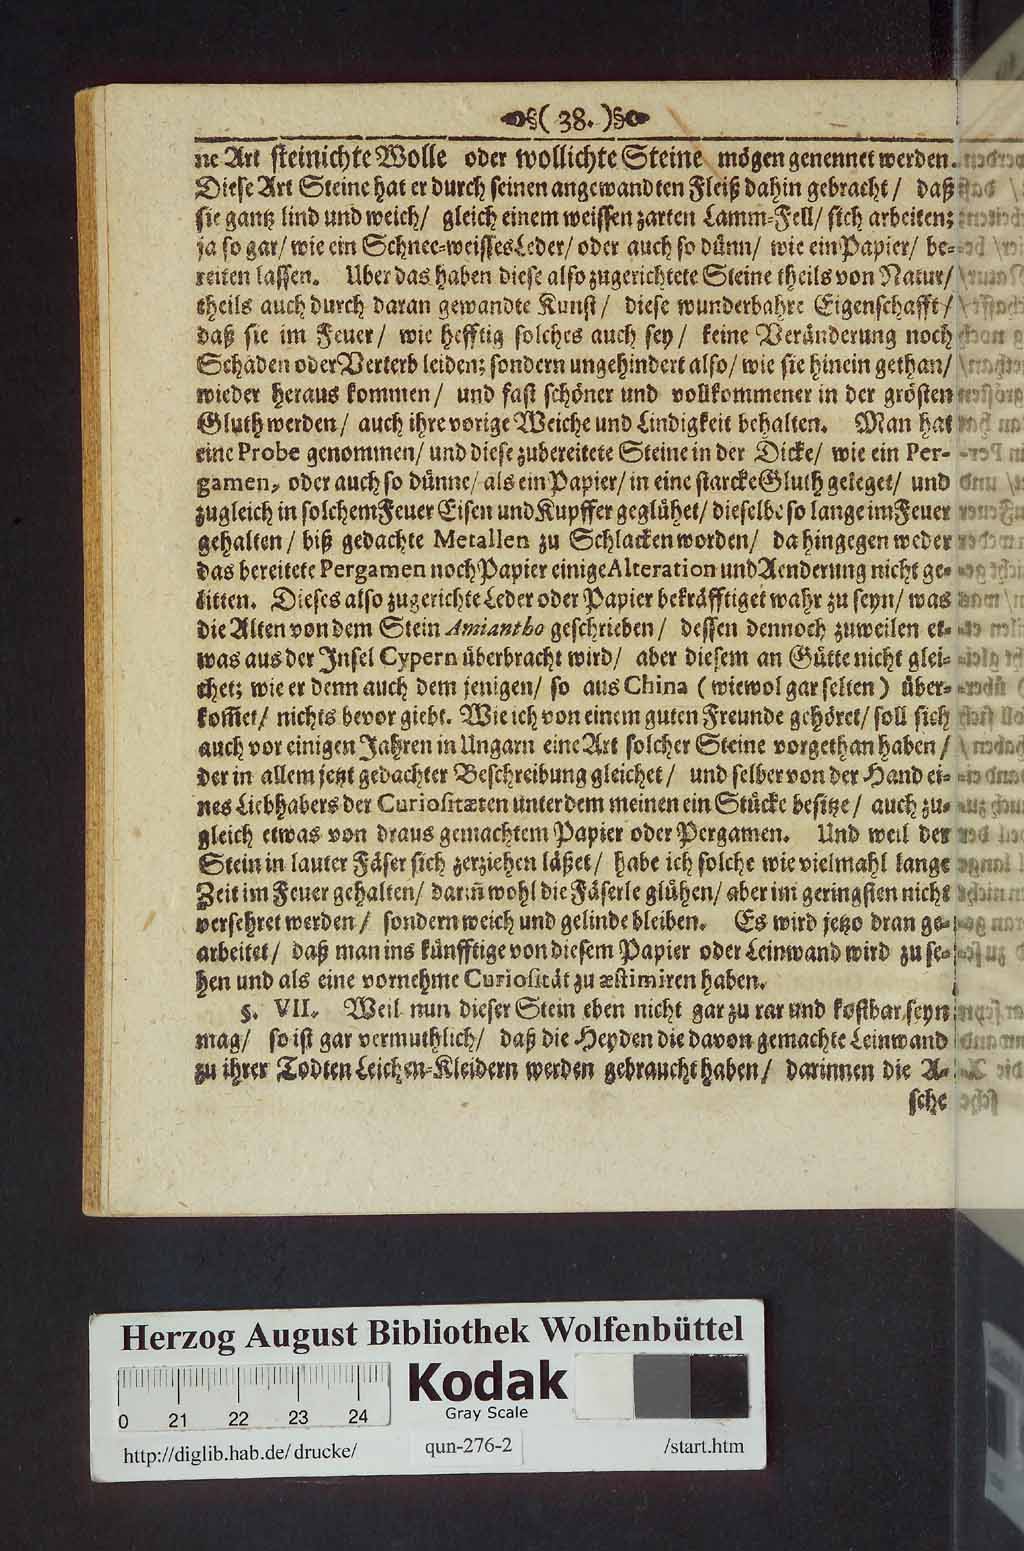 §( 38. )§
ne Art steinichte Wolle oder wollichte Steine mögen genennet werden.
Diese Art Steine hat er durch seinen angewandten Fleiß dahin gebracht/ daß
sie gantz lind und weich/ gleich einem weissen zarten Lamm-Fell/ sich arbeiten;
ja so gar/ wie ein Schnee-weisses Leder/ oder auch so dünn/ wie ein Papier/ be-
reiten lassen. Uber das haben diese also zugerichtete Steine theils von Natur/
theils auch durch daran gewandte Kunst/ diese wunderbahre Eigenschafft/
daß sie im Feuer/ wie hefftig solches auch sey/ keine Veränderung noch
Schaden oder Verterb leiden; sondern ungehindert also/ wie sie hinein gethan/
wieder heraus kommen/ und fast schöner und vollkommener in der grösten
Gluth werden/ auch ihre vorige Weiche und Lindigkeit behalten. Man hat
eine Probe genommen/ und diese zubereitete Steine in der Dicke/ wie ein Per-
gamen, oder auch so dünne/ als ein Papier/ in eine starcke Gluth geleget/ und
zugleich in solchem Feuer Eisen und Kupffer geglühet/ dieselbe so lange im Feuer
gehalten/ biß gedachte Metallen zu Schlacken worden/ da hingegen weder
das bereitete Pergamen noch Papier einige Alteration und Aenderung nicht ge-
litten. Dieses also zugerichte Leder oder Papier bekräfftiget wahr zu seyn/ was
die Alten von dem Stein Amiantho geschrieben/ dessen dennoch zuweilen et-
was aus der Insel Cypern überbracht wird/ aber diesem an Gütte nicht glei-
chet; wie er denn auch dem jenigen/ so aus China (wiewol gar selten) über-
kom̃et/ nichts bevor giebt. Wie ich von einem guten Freunde gehöret/ soll sich
auch vor einigen Jahren in Ungarn eine Art solcher Steine vorgethan haben/
der in allem jetzt gedachter Beschreibung gleichet/ und selber von der Hand ei-
nes Liebhabers der Curiositæten unter dem meinen ein Stücke besitze/ auch zu-
gleich etwas von draus gemachtem Papier oder Pergamen. Und weil der
Stein in lauter Fäser sich zerziehen läßet/ habe ich solche wie vielmahl lange
Zeit im Feuer gehalten/ dariñ wohl die Fäserle glühen/ aber im geringsten nicht
versehret werden/ sondern weich und gelinde bleiben. Es wird jetzo dran ge-
arbeitet/ daß man ins künfftige von diesem Papier oder Leinwand wird zu se-
hen und als eine vornehme Curiosität zu æstimiren haben.
§. VII. Weil nun dieser Stein eben nicht gar zu rar und kostbar seyn
mag/ so ist gar vermuthlich/ daß die Heyden die davon gemachte Leinwand
zu ihrer Todten Leichen-Kleidern werden gebraucht haben/ darinnen die A-
sche
Herzog August Bibliothek Wolfenbüttel
Kodak
Gray Scale
0 21 22 23 24
http://diglib.hab.de/drucke/ qun-276-2 /start.htm